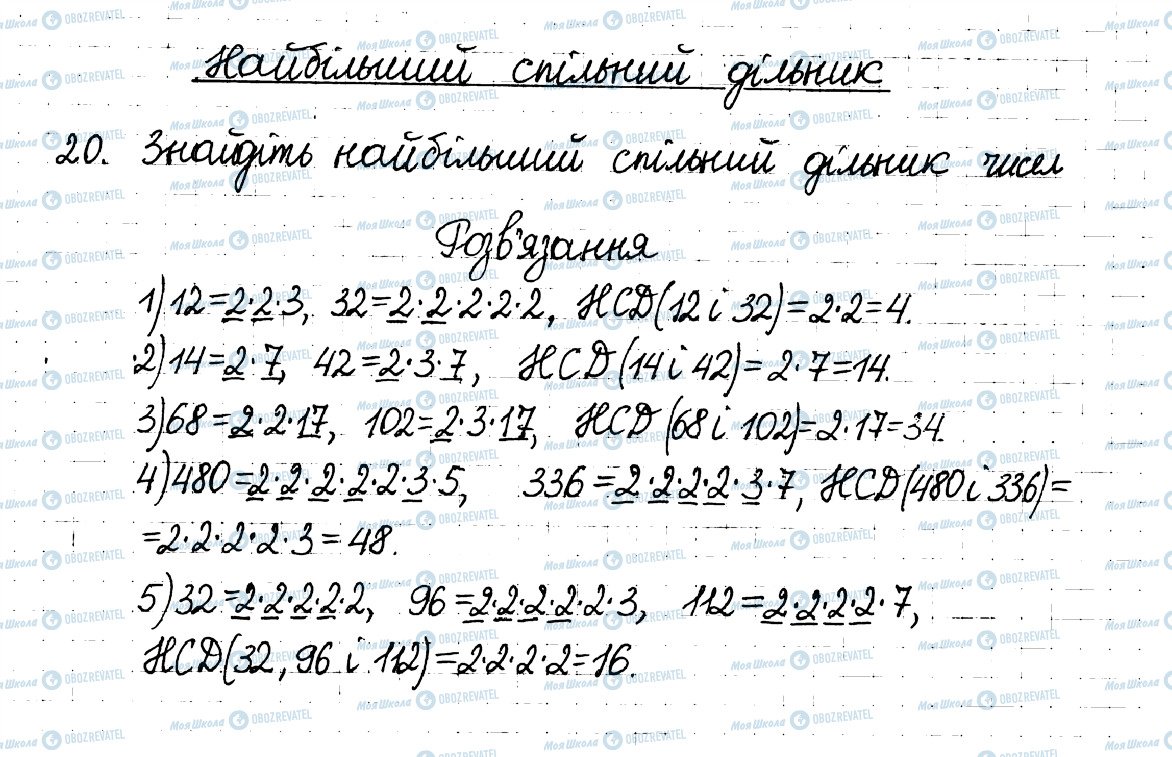 Найбільший спільний дільник
20. Знайдіть найбільший спільний дільник чисел
Розв'язання
1) 12=2·2·3, 32=2·2·2·2·2, НСД(12 і 32)=2·2=4.
2) 14=2·7, 42=2·3·7, НСД(14 і 42)=2·7=14.
3) 68=2·2·17, 102=2·3·17, НСД(68 і 102)=2·17=34.
4) 480=2·2·2·2·2·3·5, 336=2·2·2·2·3·7, НСД(480 і 336)=
=2·2·2·2·3=48.
5) 32=2·2·2·2·2, 96=2·2·2·2·2·3, 112=2·2·2·2·7,
НСД(32, 96 і 112)=2·2·2·2=16.